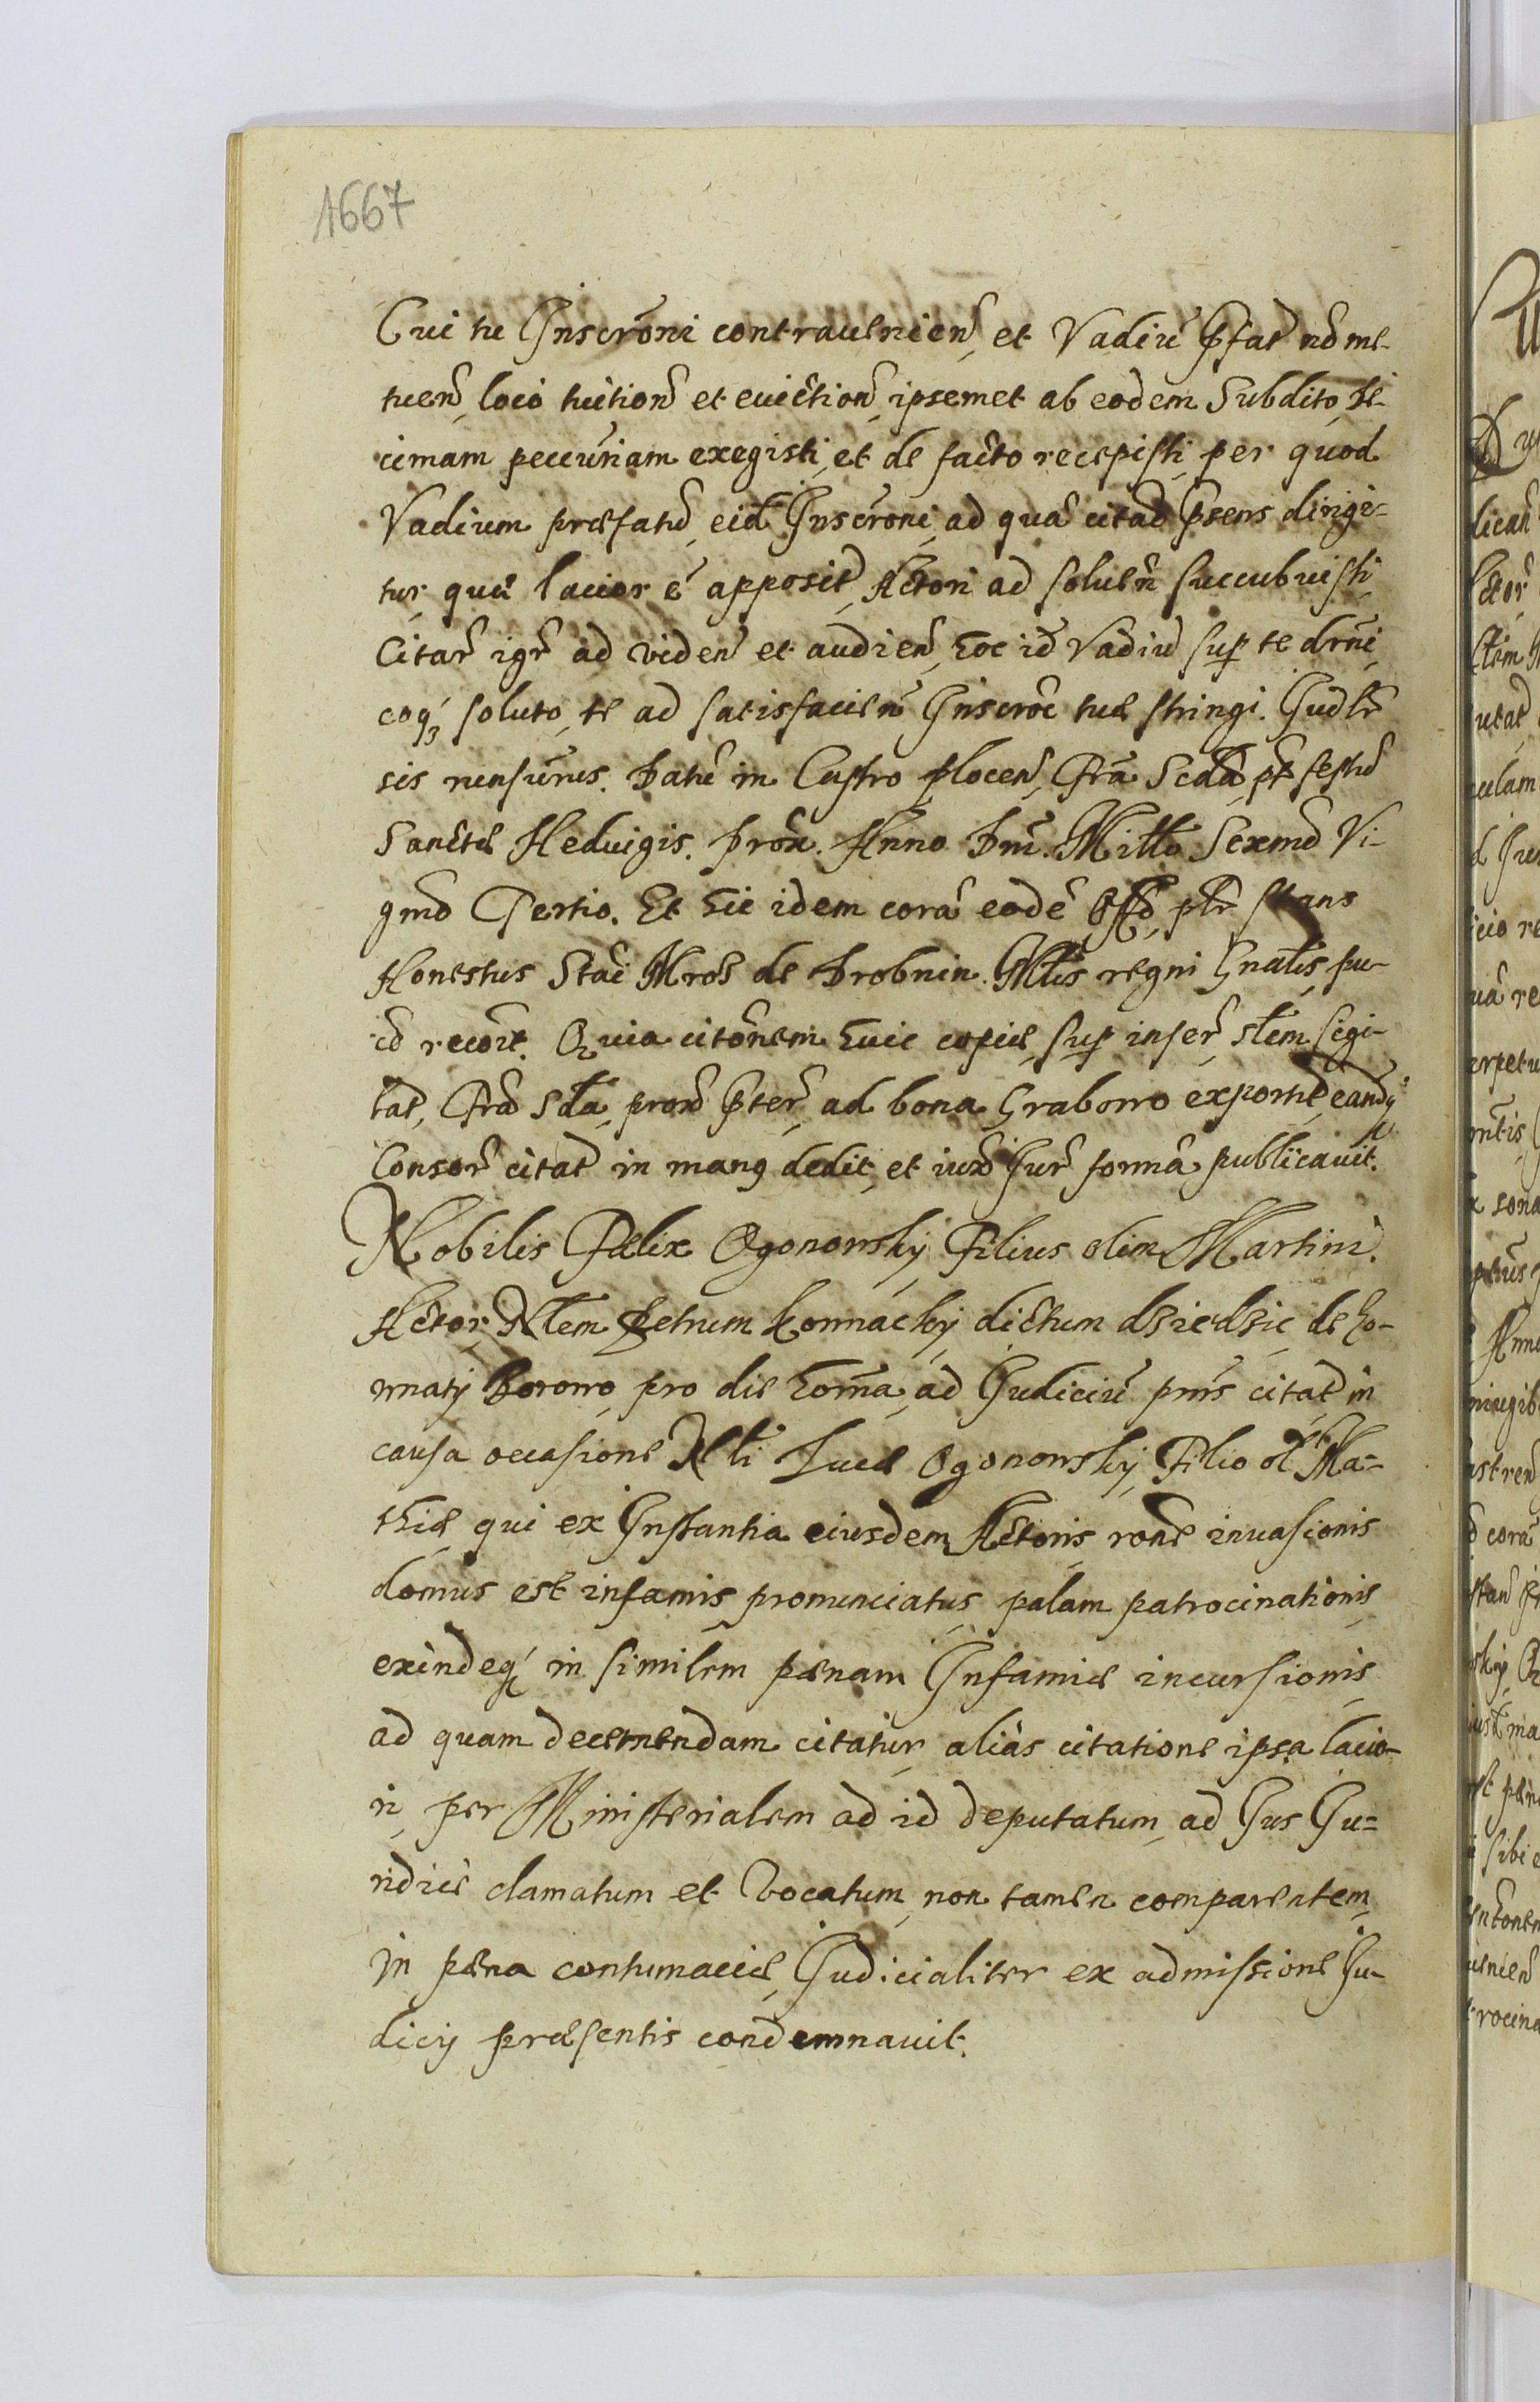 1667
Cui tu Inscrōni contravenieñ et Vadiū pfat̃ nō me-
tueñ loco tuitioñ et evictioñ ipsemet ab eodem Subdito de-
cimam pecuniam exegisti, et de facto recepisti, per quod
Vadium præfatū, eid̃ Inscrōni, ad quā citað pñsens dirigi-
tur, quæ lacior ē apposit̃, Actori ad solueñ succubuisti,
Citar̃ igr̃ ad videñ et audieñ, hoc id̃ Vadiū sup te dr̃ni,
eoq́ꝫ soluto, te ad satisfacieñ Inscrōe tuæ stringi. Judlr̃
sis rensurus. Datū in Castro ploceñ, Fr̃a Scda, pt̃ festū
Sanctæ Heduigis. prox̃. Anno Dnī. Mill̃o Sexmõ Vi-
gmõ Tertio. Et hic idem corā eodē Offõ plr̃ stans
Honestus Stac̃ Mroz de Drobnin. Mtis regni Gnalis, pu-
cõ recoñt. Quia citōnem huic copiæ sup inser̃, stem sigi-
lat̃, Fr̃a Sda, proxõ pter̃ ad bona Grabowo exportd̃, eandq́
Consor̃ citat̃ in manꝯ dedit, et iuxõ Jur̃ formā publicavit.
Nobilis Fælix Ogonowskÿ Filius olim Martini.
Actor, Nlem Petrum Kormackÿ dictum dziedzic de Ko-
rmatÿ Borowo pro die hornā, ad Judiciū pnis citat̃ in
causa occasione Nlĩ Lucæ Ogonowskÿ, Filio ol̃ Ma-
thiæ qui ex Instantia eiusdem Actoris rone invasionis
domus est infamis pronunciatus, palam patrocinationis
exindeq́ in similem pænam Infamiæ incursionis
ad quam decernendam citatur, aliàs citatione ipsa lacio-
ri, per Ministerialem ad id deputatum, ad Jus Ju-
ridicè clamatum et vocatum, non tamen comparentem,
in pæna contumaciæ, Judicialiter ex admissione Ju-
dicÿ præsentis condemnavit.